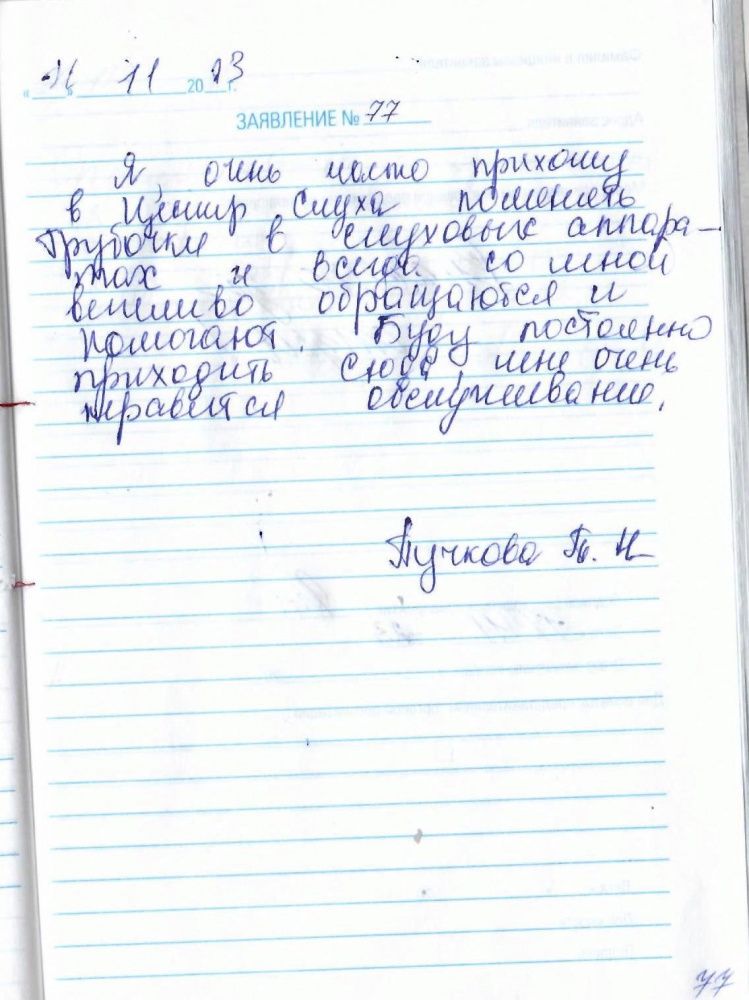 « » 11 2023 г.
ЗАЯВЛЕНИЕ № 77
Я, очень часто прихожу
в Центр слуха поменять
трубочки в слуховых аппара-
тах и всегда со мной
вежливо обращаются и
помогают. Буду постоянно
приходить сюда, мне очень
нравится обслуживание.
Пучкова Т. Н.
77